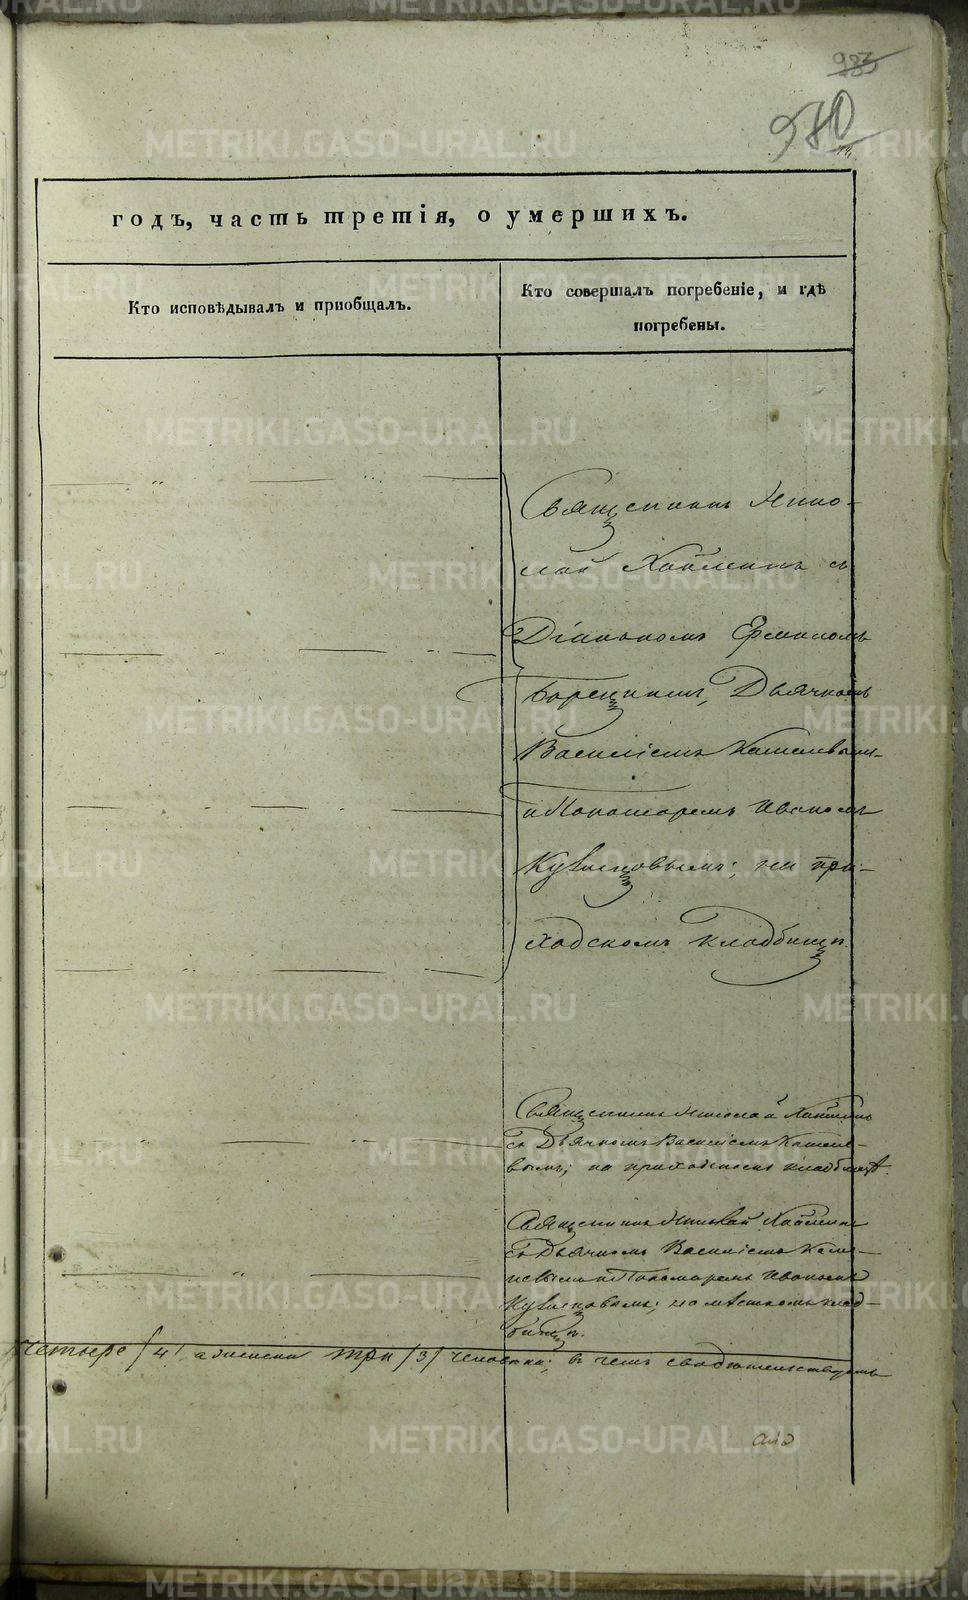 983
980
годъ, часть третія, о умершихъ.
Кто исповѣдывалъ и пріобщалъ.
Кто совершалъ погребеніе, и гдѣ
погребены.
Священникъ Нико-
лай Хайминъ съ
Діакономъ
Борецкимъ, Дьячкомъ
Василіемъ
и Пономаремъ Иваномъ
Кузнецовымъ; на при-
ходскомъ кладбищѣ.
Священникъ Николай Хайминъ
съ Дьячкомъ Василіемъ
на приходскомъ кладбищѣ.
Священникъ Николай Хайминъ
съ Дьячкомъ Василіемъ
и Пономаремъ Иваномъ
Кузнецовымъ; на мѣстномъ клад-
бищѣ.
четыре /4/ а женска три /3/ человѣка; въ чемъ свидѣтельствуемъ
METRIKI.GASO-URAL.RU